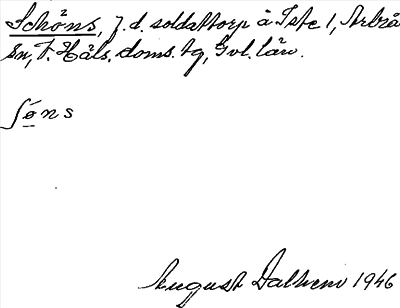 Schöns, f. d. soldattorp å Iste 1, Arbrå
sn, V. Häls. doms. tg, Gvl. län.
ʃøns
August Dalheim 1946